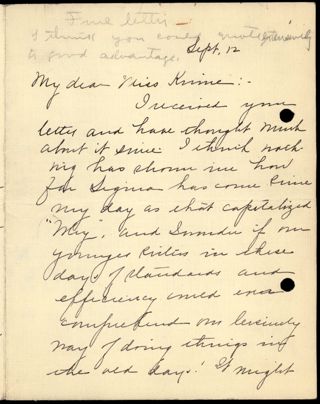 Fine letter
I think you could quote extensively
to good advantage.
Sept, 12
My dear Miss Krime:-
I received your
letter and have thought much
about it since I think noth
ing has shown me how
far Sigma has come since
my day as that capitalized
"Why", and I wonder if our
younger sisters in these
days of standards and
efficiency could ever
comprehend our leisurely
way of doing things in
the old days. It might